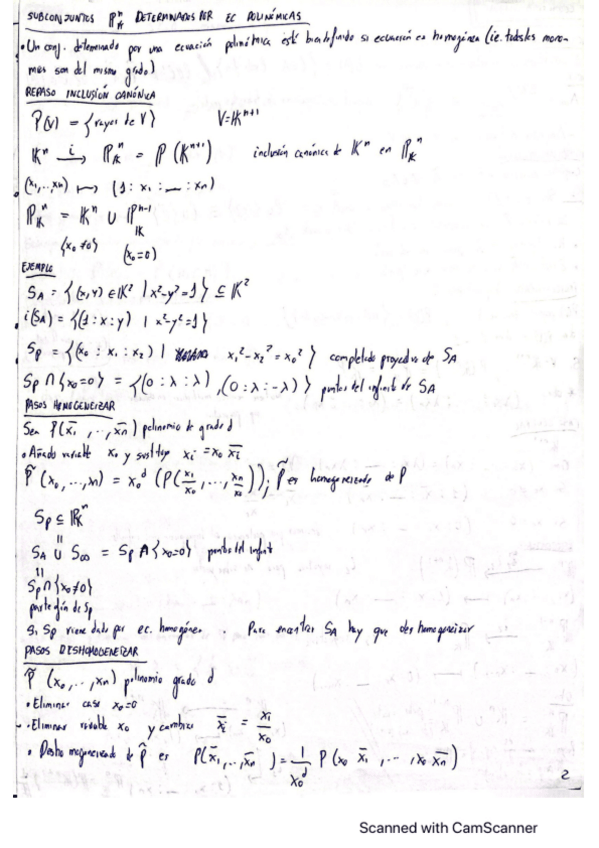 SUBCONJUNTOS ℙⁿ_𝕂 DETERMINADOS POR EC POLINÓMICAS
• Un conj. determinado por una ecuación polinómica está bien definido si ecuación es homogénea (i.e. todos los mono-
mios son del mismo grado)
REPASO INCLUSIÓN CANÓNICA
P(V) = {rayos de V} V = 𝕂ⁿ⁺¹
𝕂ⁿ —i→ ℙⁿ_𝕂 = P(𝕂ⁿ⁺¹) inclusión canónica de 𝕂ⁿ en ℙⁿ_𝕂
(x₁,..,xₙ) ↦ (1 : x₁ : ... : xₙ)
ℙⁿ_𝕂 = 𝕂ⁿ ∪ ℙⁿ⁻¹_𝕂
{x₀≠0} (x₀=0)
EJEMPLO
S_A = {(x,y) ∈ 𝕂² | x²-y²=1} ⊆ 𝕂²
i(S_A) = {(1:x:y) | x²-y²=1}
S_P = {(x₀ : x₁ : x₂) | x₁²-x₂²=x₀²} completado proyectivo de S_A
S_P ∩ {x₀=0} = {(0:λ:λ), (0:λ:-λ)} puntos del infinito de S_A
PASOS HOMOGENEIZAR
Sea P(x̄₁,..,x̄ₙ) polinomio de grado d
• Añado variable x₀ y sustituyo xᵢ = x₀ x̄ᵢ
P̃(x₀,...,xₙ) = x₀ᵈ (P(x₁/x₀,...,xₙ/x₀)); P̃ es homogeneizado de P
S_P ⊆ ℙⁿ_𝕂
=
S_A ∪ S_∞ = S_P ∩ {x₀=0} puntos del infinit
=
S_P ∩ {x₀≠0}
parte afín de S_P
Si S_P viene dado por ec. homogénea Para encontrar S_A hay que deshomogeneizar
PASOS DESHOMOGENEIZAR
P̃(x₀,..,xₙ) polinomio grado d
• Eliminar caso x₀=0
- Eliminar variable x₀ y cambiar x̄ᵢ = xᵢ/x₀
• Deshomogeneizado de P̃ es P(x̄₁,..,x̄ₙ) = 1/x₀ᵈ P(x₀ x̄₁,...,x₀ x̄ₙ)
2
Scanned with CamScanner